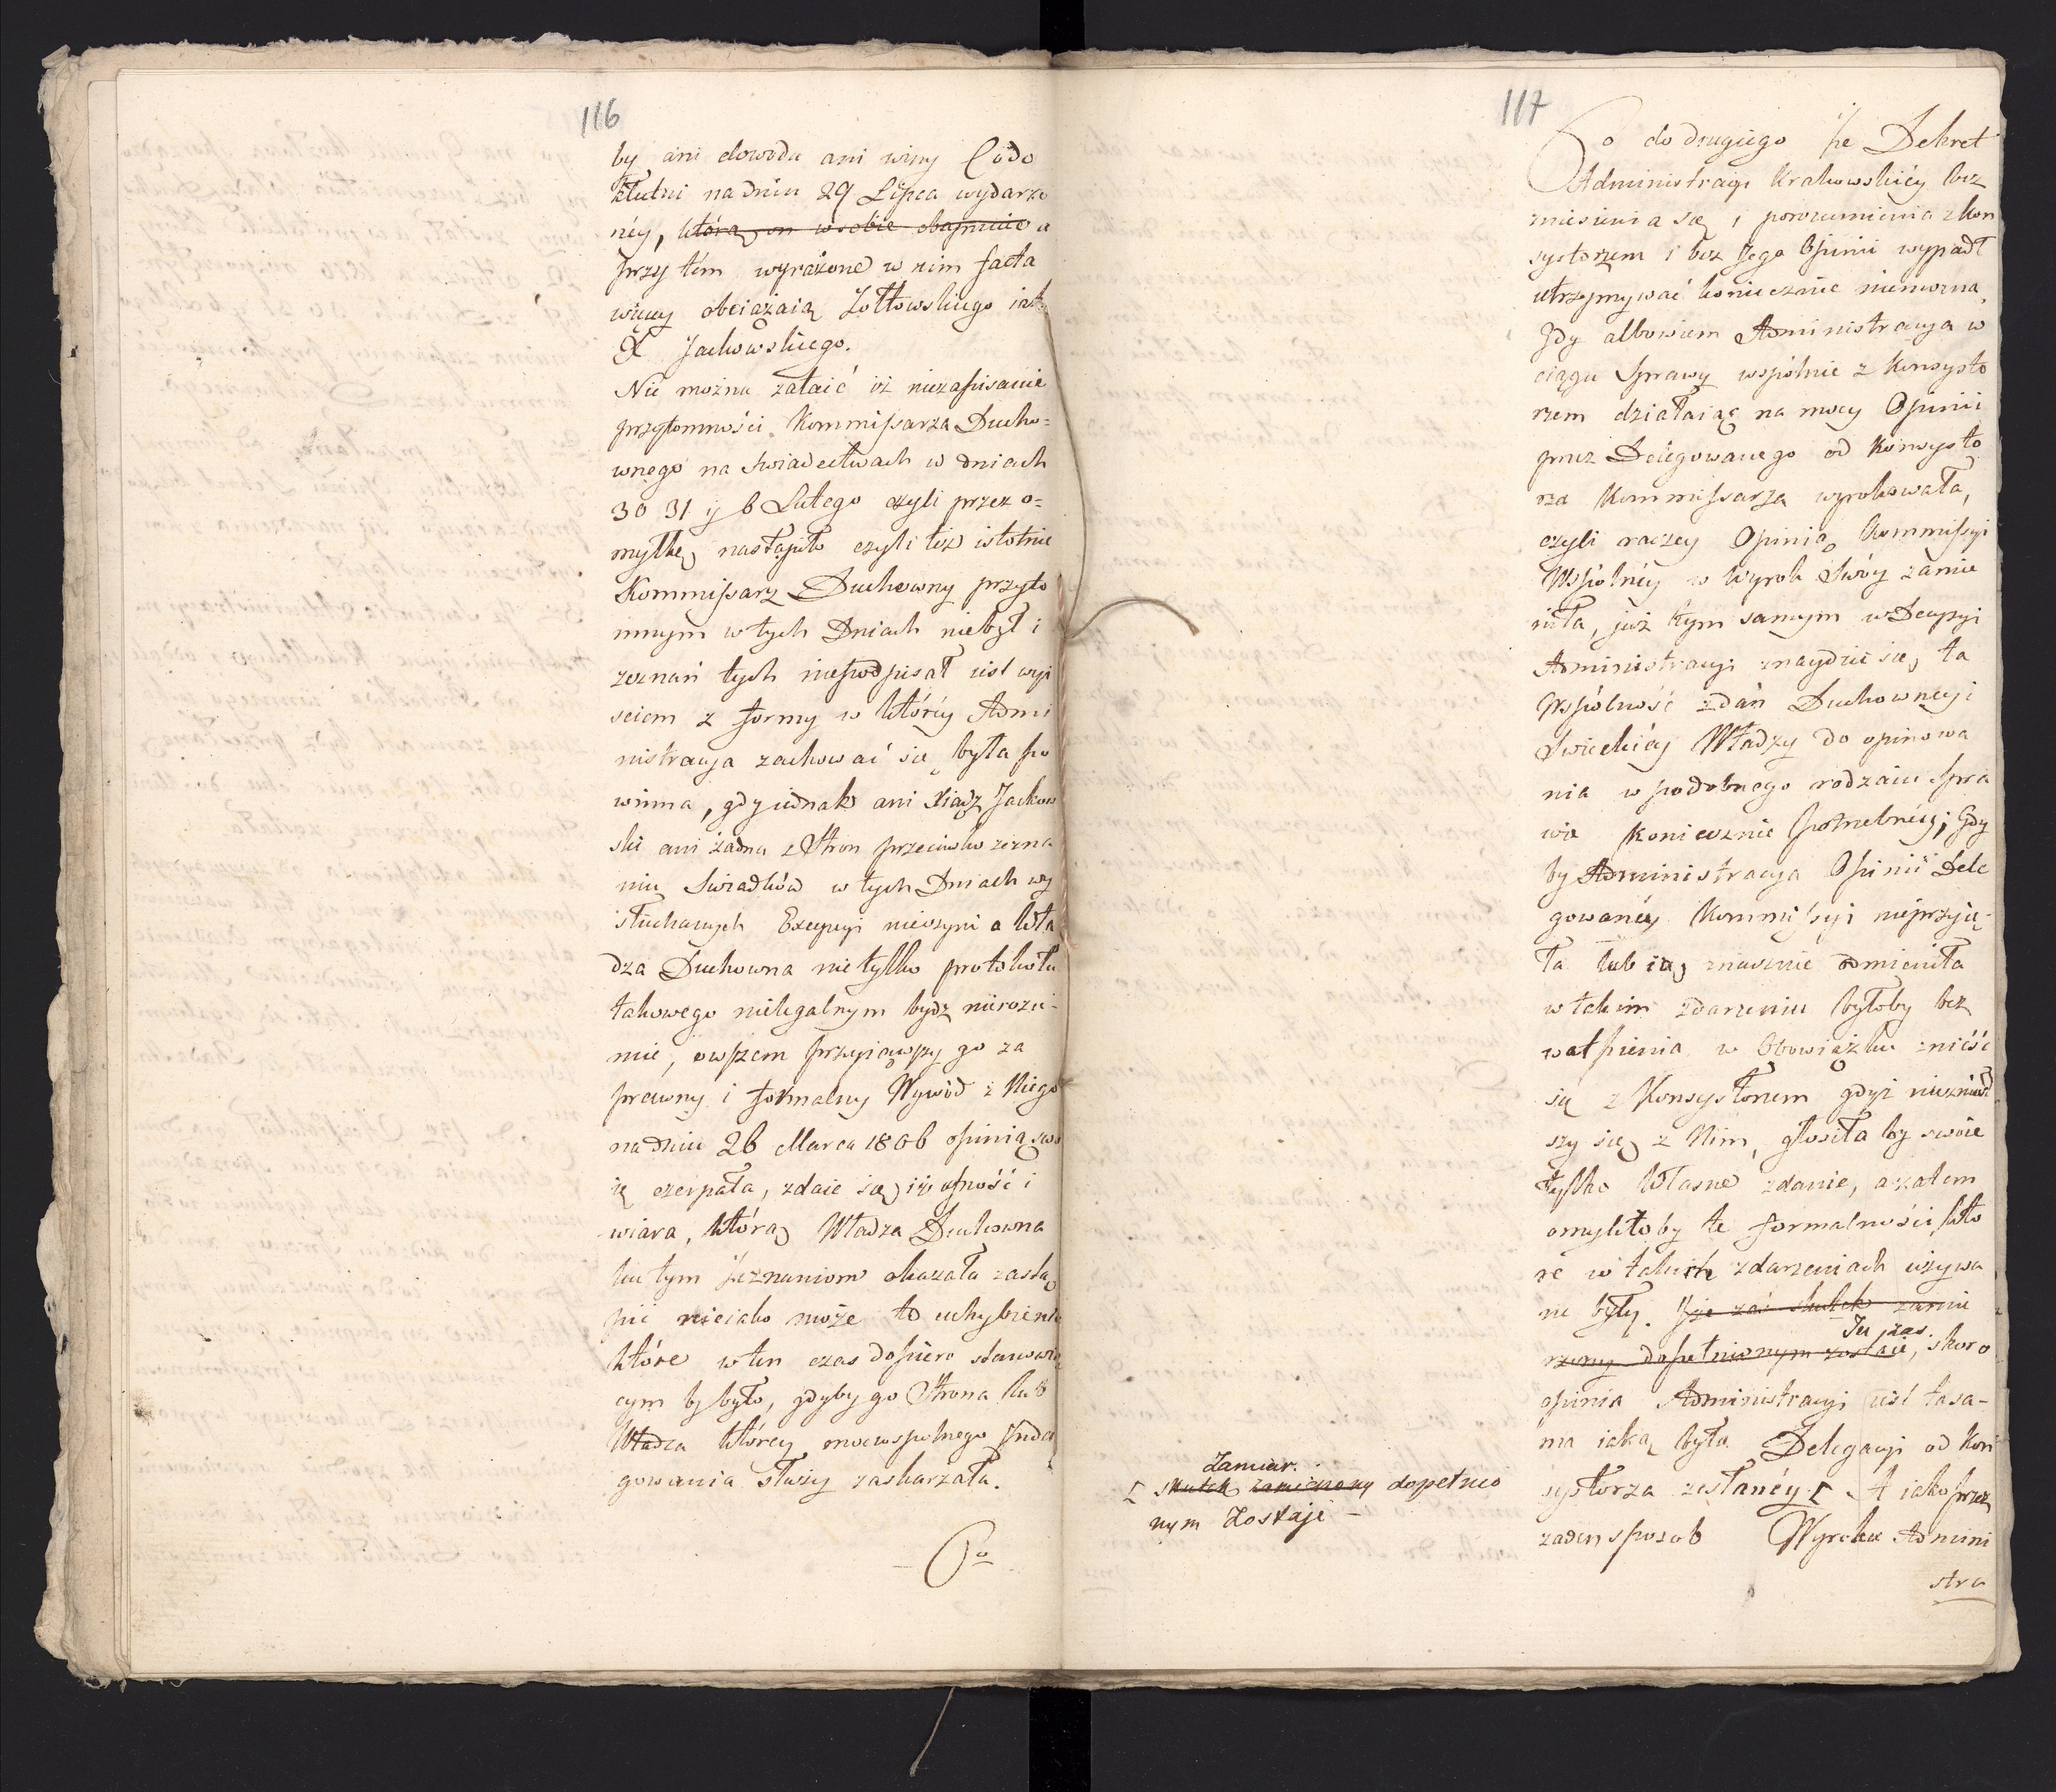 116
by ani dowodu ani winy Codo
kłutni na dniu 29 Lipca wydarzo
néy, którą on w sobie obaymuie a
przy tém wyrażone w nim facta
więcey obciążaią Zołtowskiego iak
X Jackowskiego.
Nie można zataić iż niezapisanie
przytomności Kommissarza Ducho=
wnego na świadectwach w dniach
30 31 y 6 Lutego czyli przez o=
myłkę nastąpiło czyli téż istotnie
Kommissarz Duchowny przyto
mnym w tych Dniach niebył i
zeznań tych niepodpisał iest wyi
sciem z formy w któréy Admi
nistracya zachować się była po
winna, gdy iednak ani Xiądz Jackow
ski ani żadna z Stron przeciwko zezna
niu Swiadków w tych Dniach wy
słuchanych Excepcyi nieczyni a Wła
dza Duchowna nietylko protokołu
takowego nielegalnym bydz nierozu-
mie, owszem przyiąwszy go za
prawny i formalny Wywód z Niego
na dniu 26 Marca 1806 opinią swo
ię czerpała, zdaie się iż ufność i
wiara, którą Władza Duchowna
ku tym zeznaniom okazała zastą
pić nieiako może to uchybienie
które w ten czas dopiero stanowią
cym by było, gdyby go Strona lub
Władza któréy moc wspolnego Inda
gowania służy zaskarzała.
Co
117
Co do drugiego że Dekret
Administracyi Krakowskiéy bez
zniesienia się i porozumienia z kon
systorzem i bez Jego Opinii wypadł
utrzymywać koniecznie niemożna,
Gdy albowiem Administracya w
ciągu Sprawy wspólnie z Konsysto
rzem działaiąc na mocy Opinii
przez Delegowanego od Konsysto
rza Kommissarza wyrokowała,
czyli raczey Opinią Kommissyi
Wspólnéy w Wyrok Swóy zamie
niła, już tym samym w Decyzyi
Administracyi znayduie się ta
Wspólność zdań Duchownéy i
Swieckiéy Władzy do opinowa
nia w podobnego rodzaiu Spra
wie koniecznie potrzebnéy; Gdy
by Administracya Opinii Dele
gowanéy Kommissyi nieprzyię-
ła lub ią znacznie odmieniła
w takim zdarzeniu byłoby bez
wątpienia w Obowiązku znieść
się z Konsystorzem gdyż niezniosł
szy się z Nim, głosiła by swoie
tylko Własne zdanie, a zatem
omyliłoby te formalności któ
re w takich zdarzeniach używa
ne były. Ize zaś skutek zamie
Tu zas
rzony dopełnionym zostaie, skoro
opinia Administracyi iest tasa-
ma iaką była Delegacyi od Kon
systorza zesłanéy [ A iako przez
żaden sposob Wyroku Admini
stra
Zamiar.
[ skutek zamierzony dopełnio
nym Zostaje –